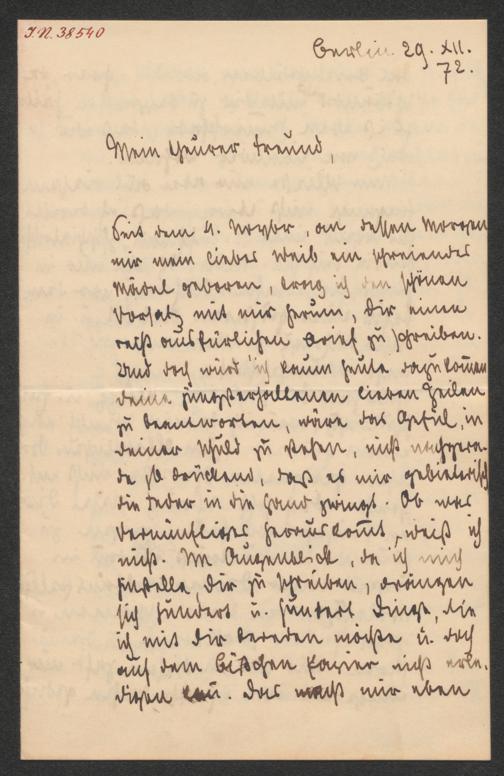 J.N. 38540
Berlin 29. XII.
72.
Mein theurer Freund,
Seit dem 4. Novbr, an dessen Morgen
mir mein liebes Weib ein schreiendes
Mädel geboren, trag ich den schönen
Vorsatz mit mir herum, dir einen
recht ausfürlichen Brief zu schreiben.
Und doch würd ich kaum heute dazu kom̄en
deine jüngsterhaltenen lieben Zeilen
zu beantworten, wäre das Gefül, in
deiner Schuld zu stehen, nicht nachgera-
de so drückend, daß es mir gebieterisch
die Feder in die Hand zwingt. Ob was
vernünftiges herauskom̄t, weiß ich
nicht. Im Augenblick, da ich mich
hinstelle, dir zu schreiben, drängen
sich hundert u. hundert Dinge, die
ich mit dir bereden möchte u. doch
auf dem bißchen Papier nicht erle-
digen kan̄. Das macht mir eben